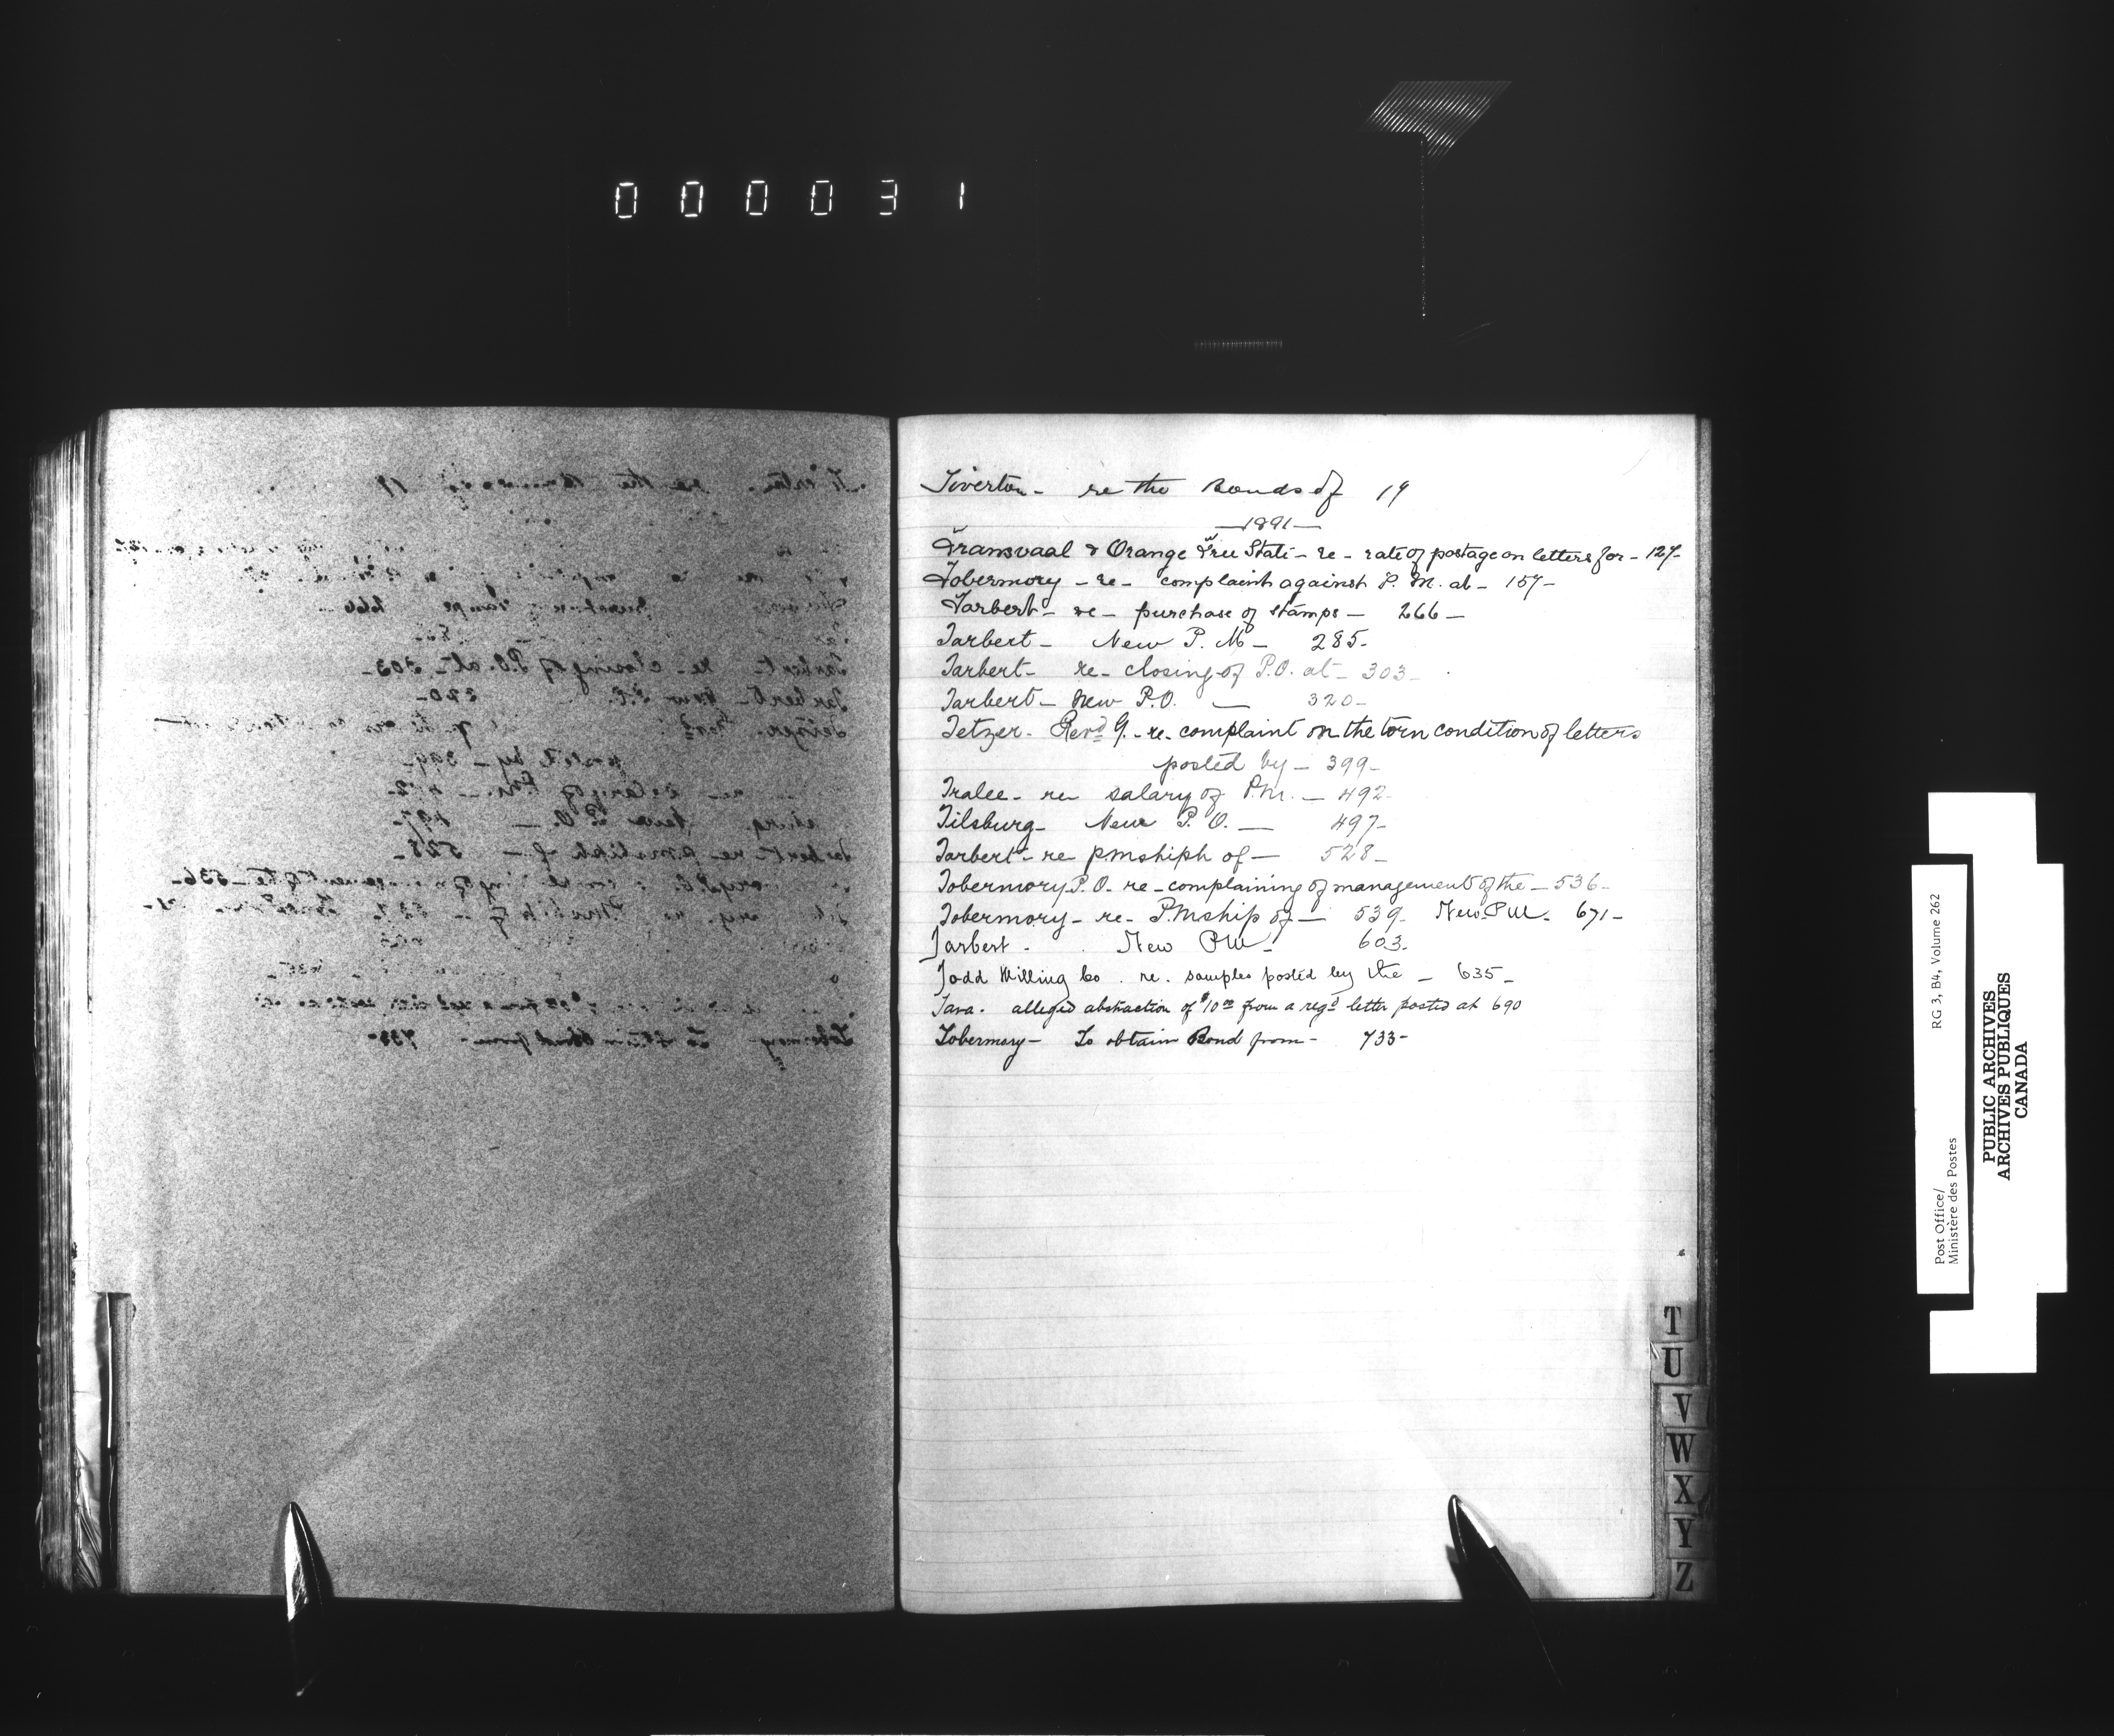 000031
Tiverton - re the Bonds of 19
—1891—
Transvaal & Orange Free State - re - rate of postage on letters for - 127-
Tobermory - re - complaint against P. M. at - 157-
Tarbert - re - purchase of stamps - 266 -
Tarbert - New P. M - 285-
Tarbert - re - closing of P.O. at - 303-
Tarbert - New P.O. — 320-
Tetzer - Revd G. - re - complaint on the torn condition of letters
posted by - 399-
Tralee - re salary of P.M. - 492-
Tilsburg - New P. O. — 497-
Tarbert - re pmshiph of - 528-
Tobermory P.O. re - complaining of management of the - 536-
Tobermory - re - P.mship of - 539- New PM. 671-
Tarbert - New PM - 603-
Todd Milling Co. re. samples posted by the - 635-
Tara. alleged abstraction of $10.00 from a regd letter posted at 690
Tobermory - To obtain Bond from - 733-
T
U
V
W
X
Y
Z
Post Office/
Ministère des Postes
RG 3, B4, Volume 262
PUBLIC ARCHIVES
ARCHIVES PUBLIQUES
CANADA